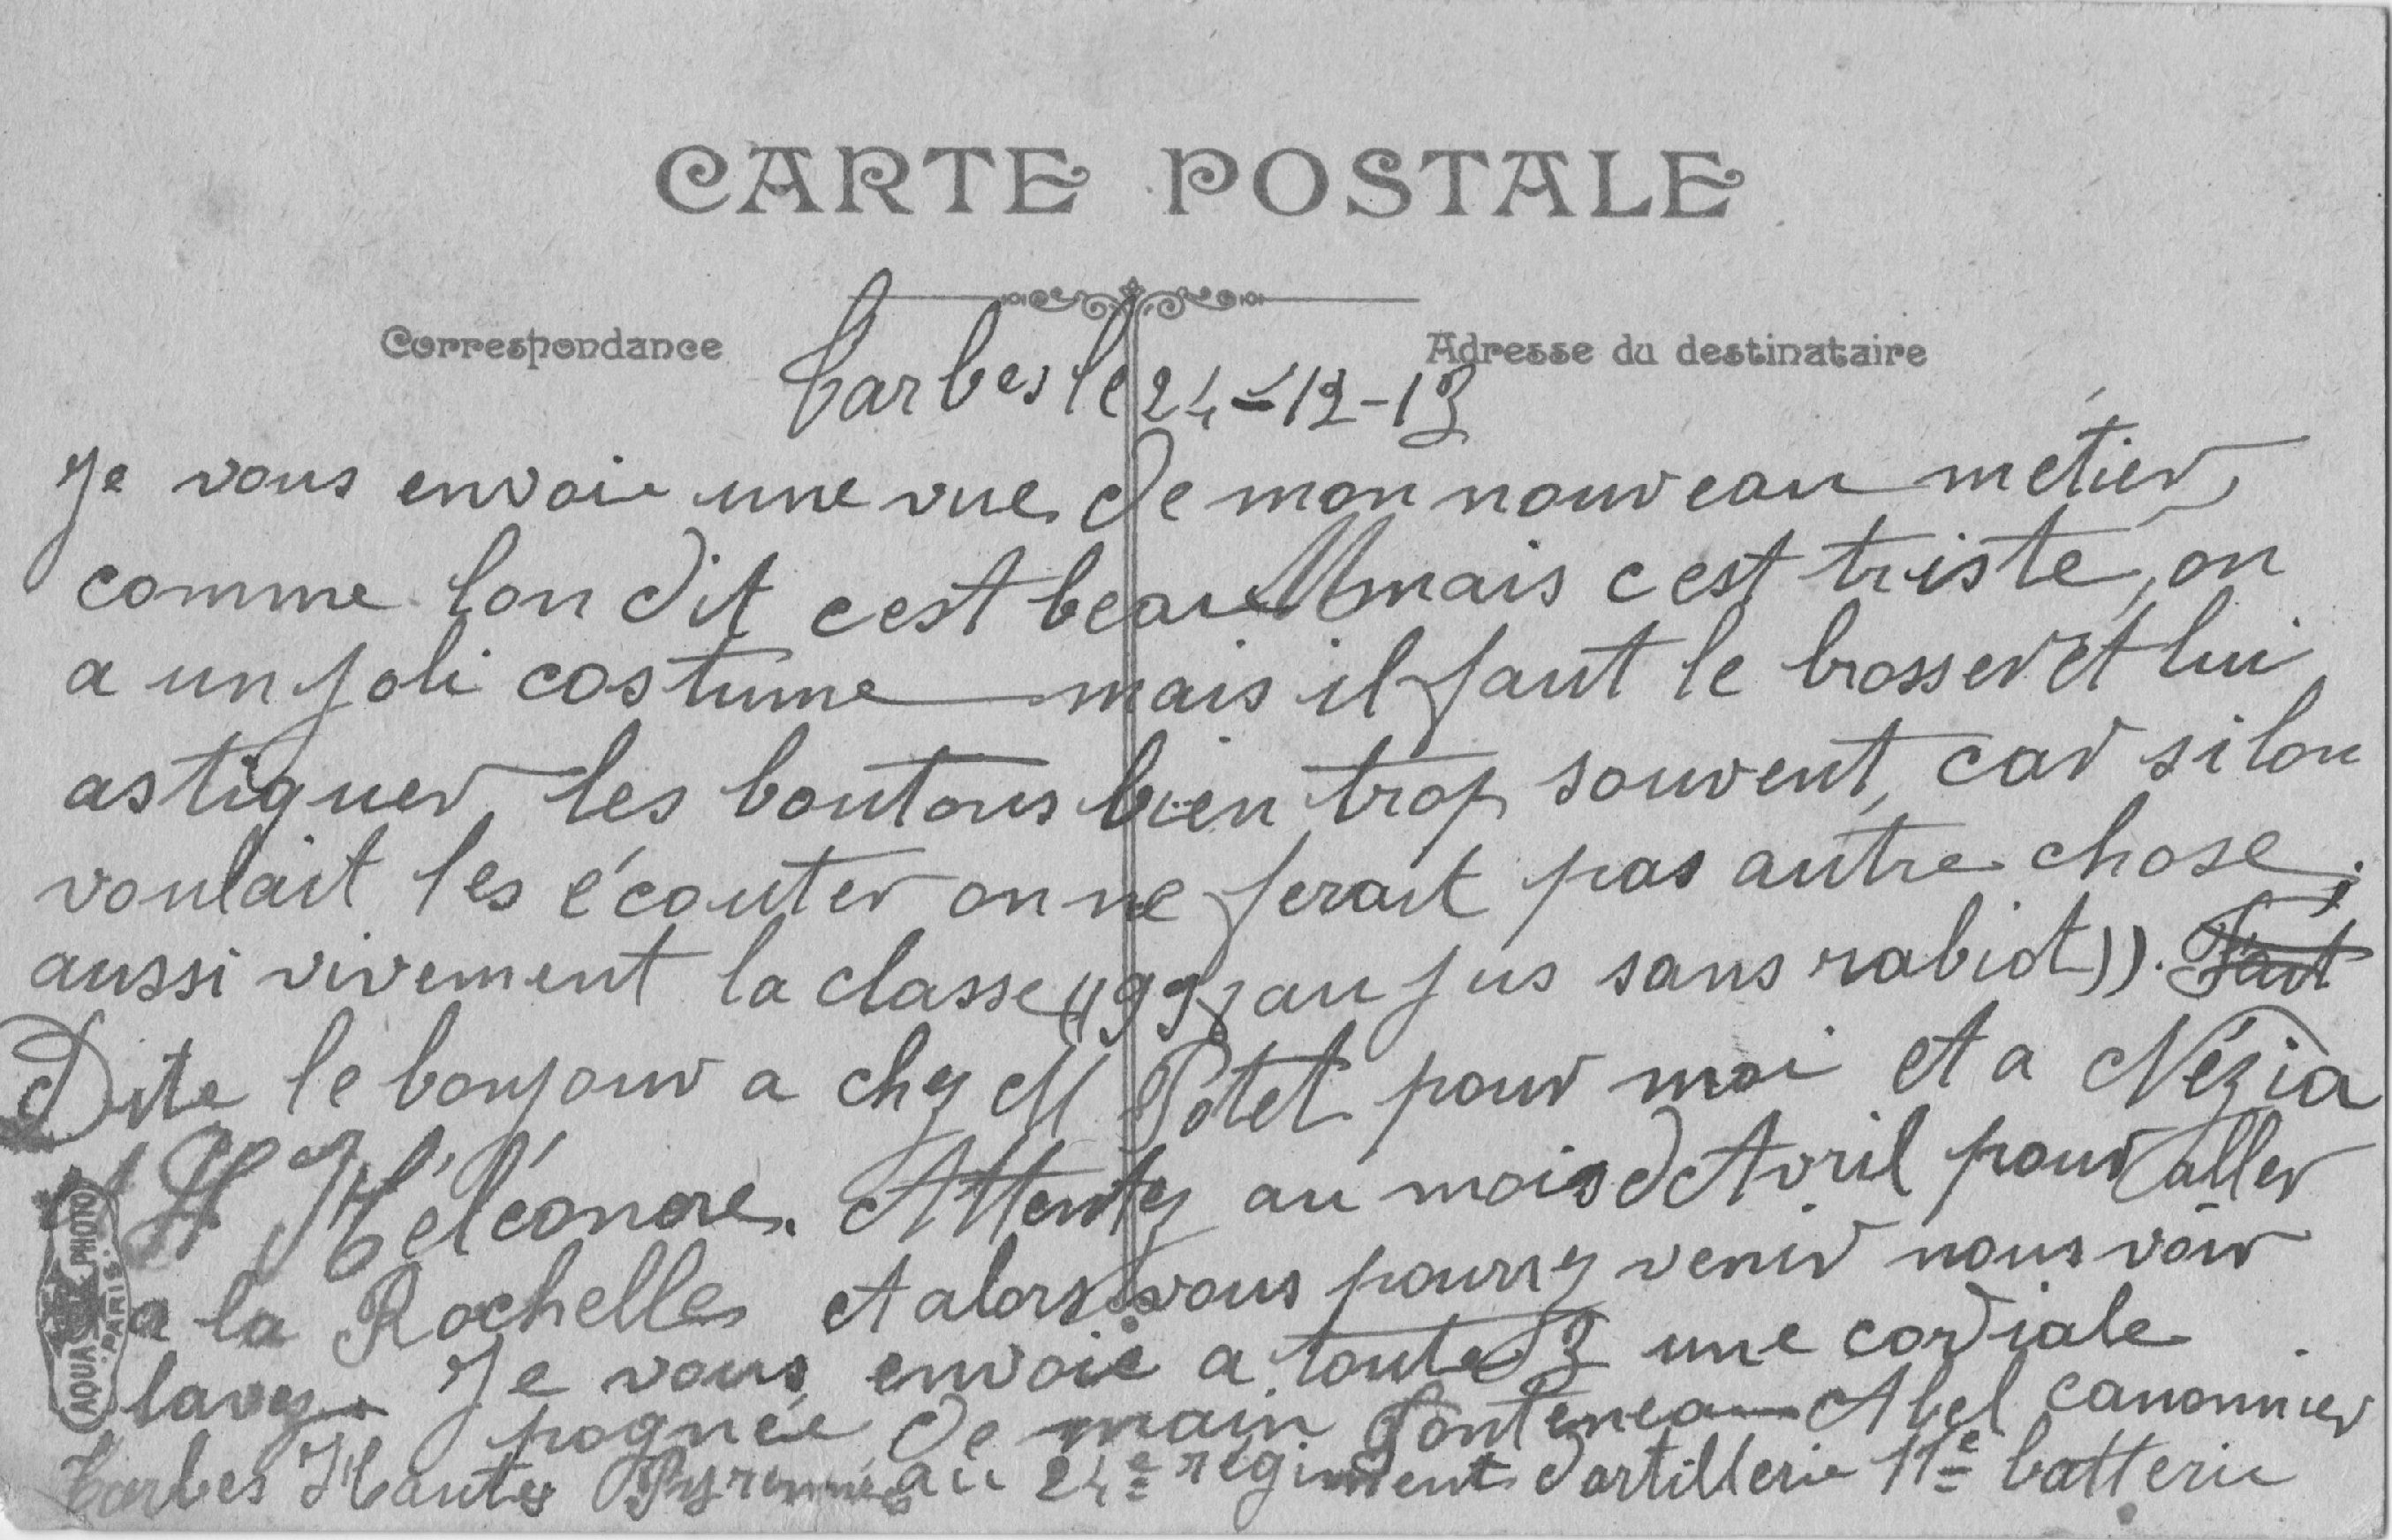 CARTE POSTALE
Correspondance
Adresse du destinataire
Tarbes le 24-12-13
Je vous envoie une vue de mon nouveau métier,
comme lon dit cest beau mais cest triste, on
a un joli costume mais il faut le brosser et lui
astiquer les boutons bien trop souvent, car si lon
voulait les écouter on ne ferait pas autre chose;
aussi vivement la classe ((99 au jus sans rabiot)).
Dite le bonjour a chez M Potet pour moi et a Nézia
et Héléonore. Attentez au mois dAvril pour aller
a la Rochelle et alors vous pourrez venir nous voir
lavez. Je vous envoie a toutes 3 une cordiale
pognée de main Fonteneau Abel canonnier
Tarbes Hautes Pyrennées au 24e régiment dartillerie 11e batterie
AQUA PHOTO
PARIS